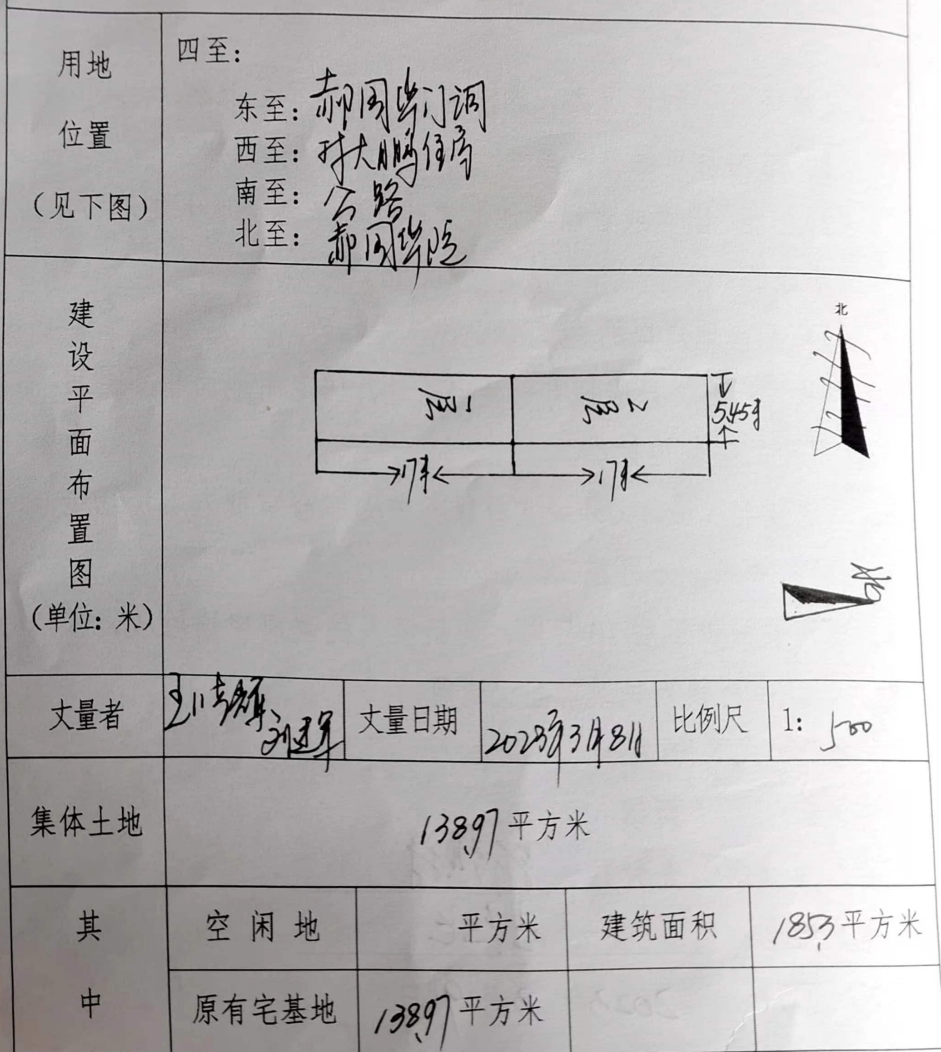 用地
位置
（见下图）
四至：
东至：郝国华门洞
西至：大鹏住房
南至：公路
北至：郝国华院
建设平面布置图
（单位：米）
北
1层
2层
5.45米
17米
17米
北
丈量者
刘建军
丈量日期
2023年3月8日
比例尺
1：500
集体土地
138.97平方米
其中
空闲地
平方米
建筑面积
185.3平方米
原有宅基地
138.97平方米